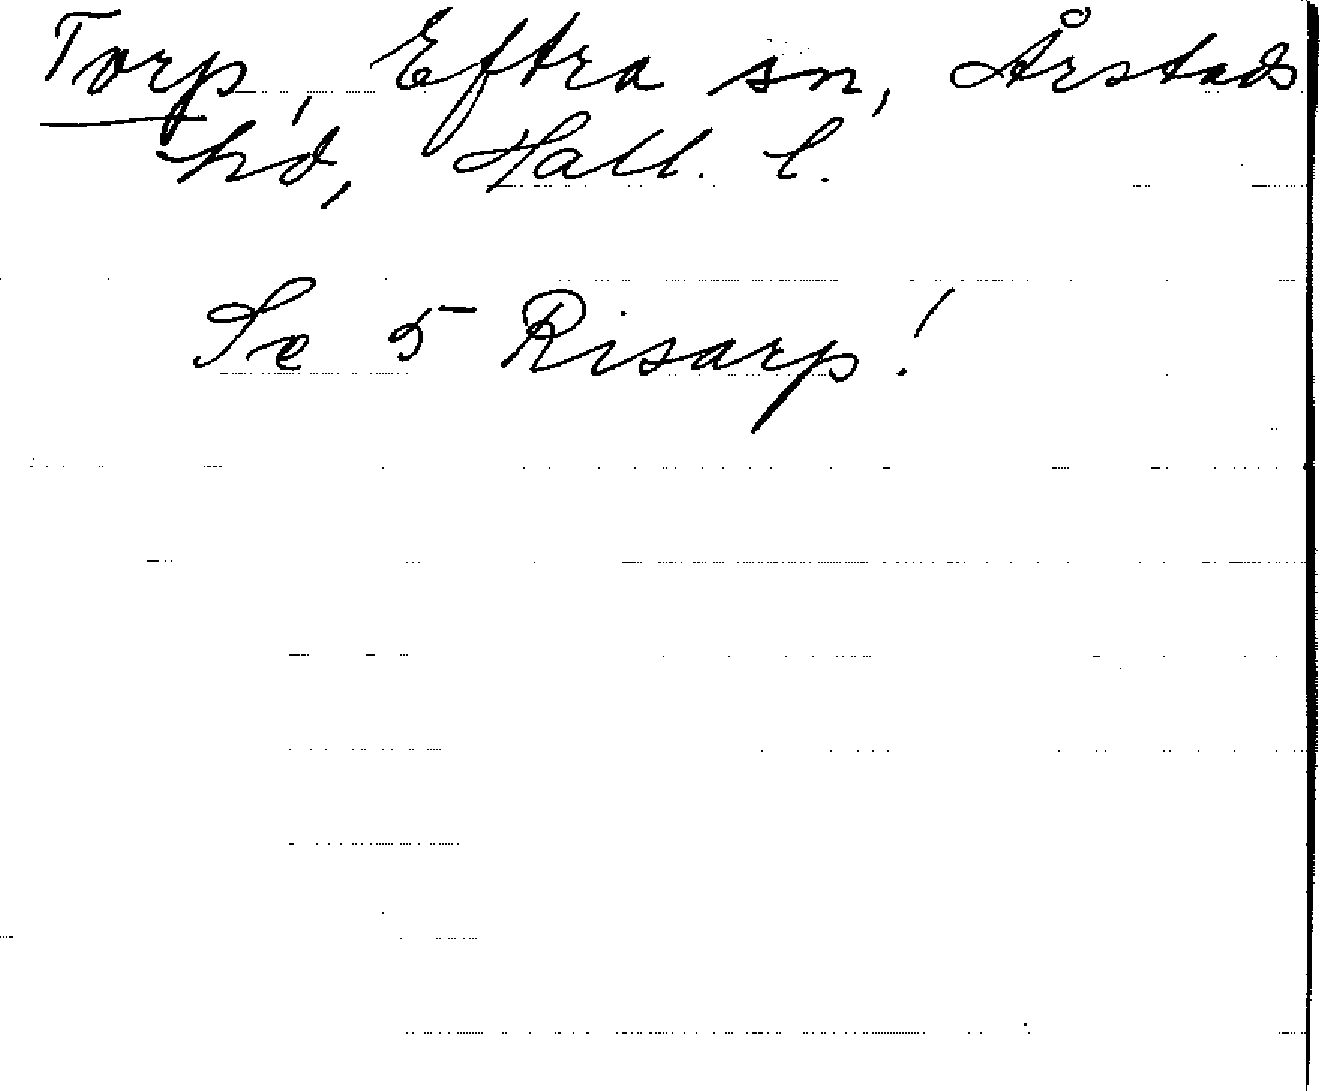 Torp, Eftra sn, Årstads
hd, Hall. l.
Se 5 Risarp!